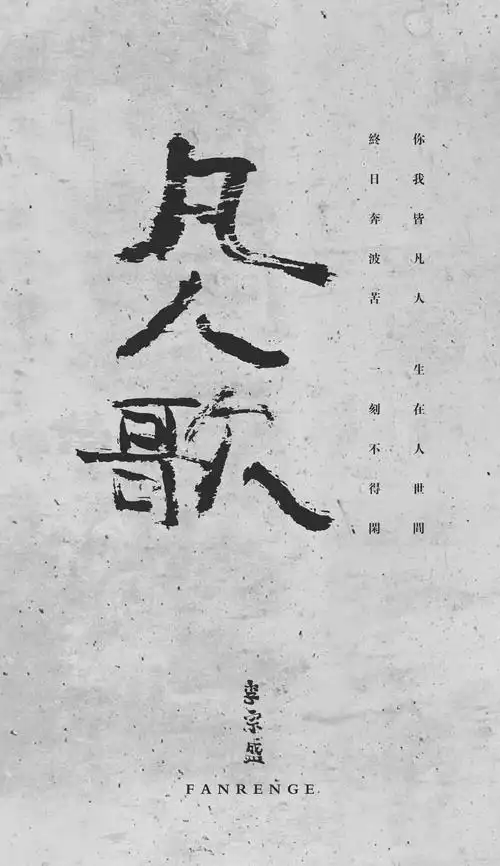 凡人歌
你我皆凡人 生在人世間
終日奔波苦 一刻不得閑
李宗盛
FANRENGE